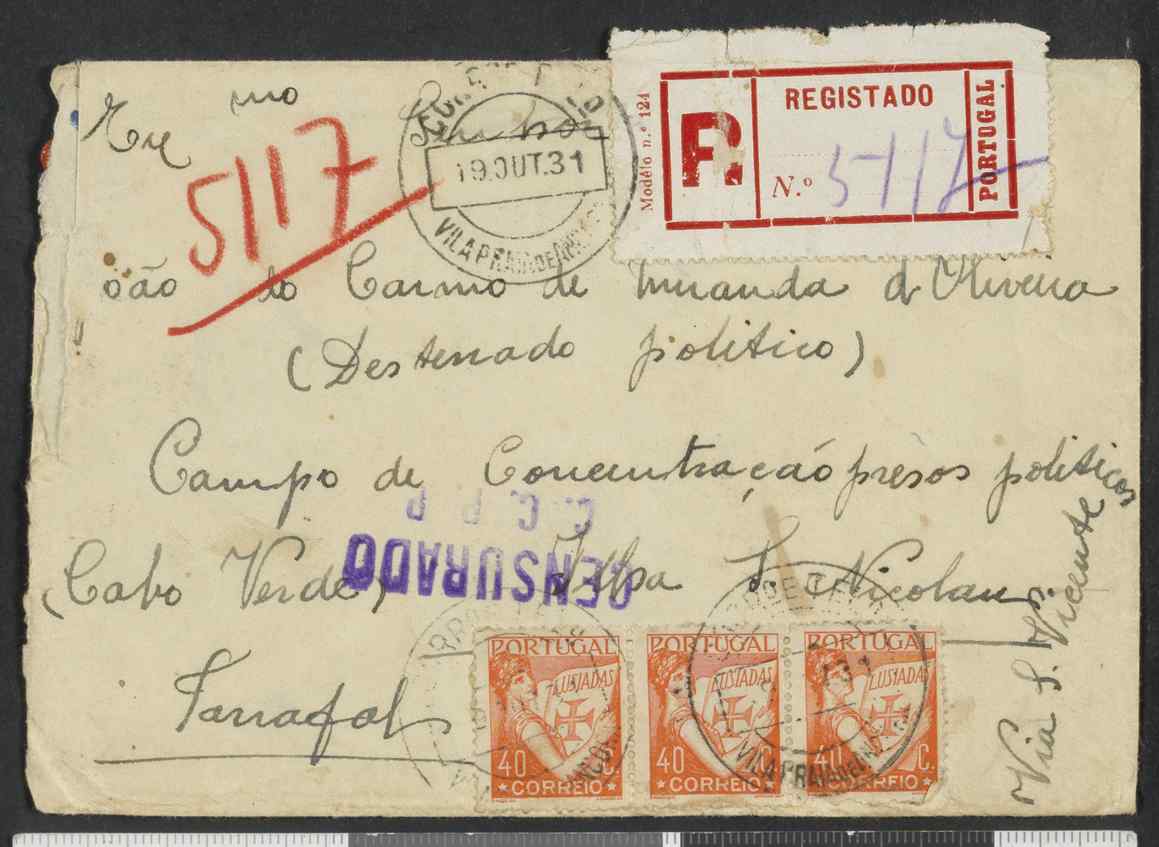 Exmo Senhor
5117
19.OUT.31
VILA PRAIA DE ANCORA
Modélo n.º 124
R
REGISTADO
N.º 5117
PORTUGAL
João do Carmo de Miranda d'Oliveira
(Desterrado politico)
Campo de Concentração présos politicos
C. C. P. P.
CENSURADO
(Cabo Verde) Ilha S. Nicolau
Tarrafal
Via S. Vicente
PORTUGAL
LUSIADAS
40 C.
CORREIO
PORTUGAL
LUSIADAS
40 C.
CORREIO
PORTUGAL
LUSIADAS
40 C.
CORREIO
VILA PRAIA DE ANCORA